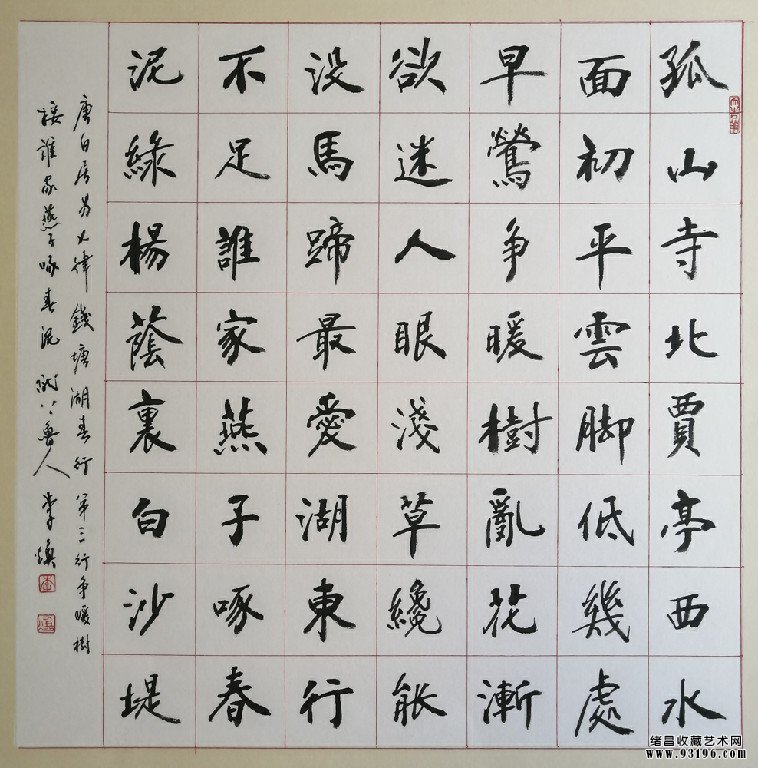 孤山寺北賈亭西水
面初平雲脚低幾處
早鶯争暖樹亂花漸
欲迷人眼淺草纔能
没馬蹄最愛湖東行
不足誰家燕子啄春
泥綠楊蔭裏白沙堤
唐白居易七律錢塘湖春行 第三行争暖樹
接誰家燕子啄春泥 魯人 李煥
绪昌收藏艺术网
www.93196.com